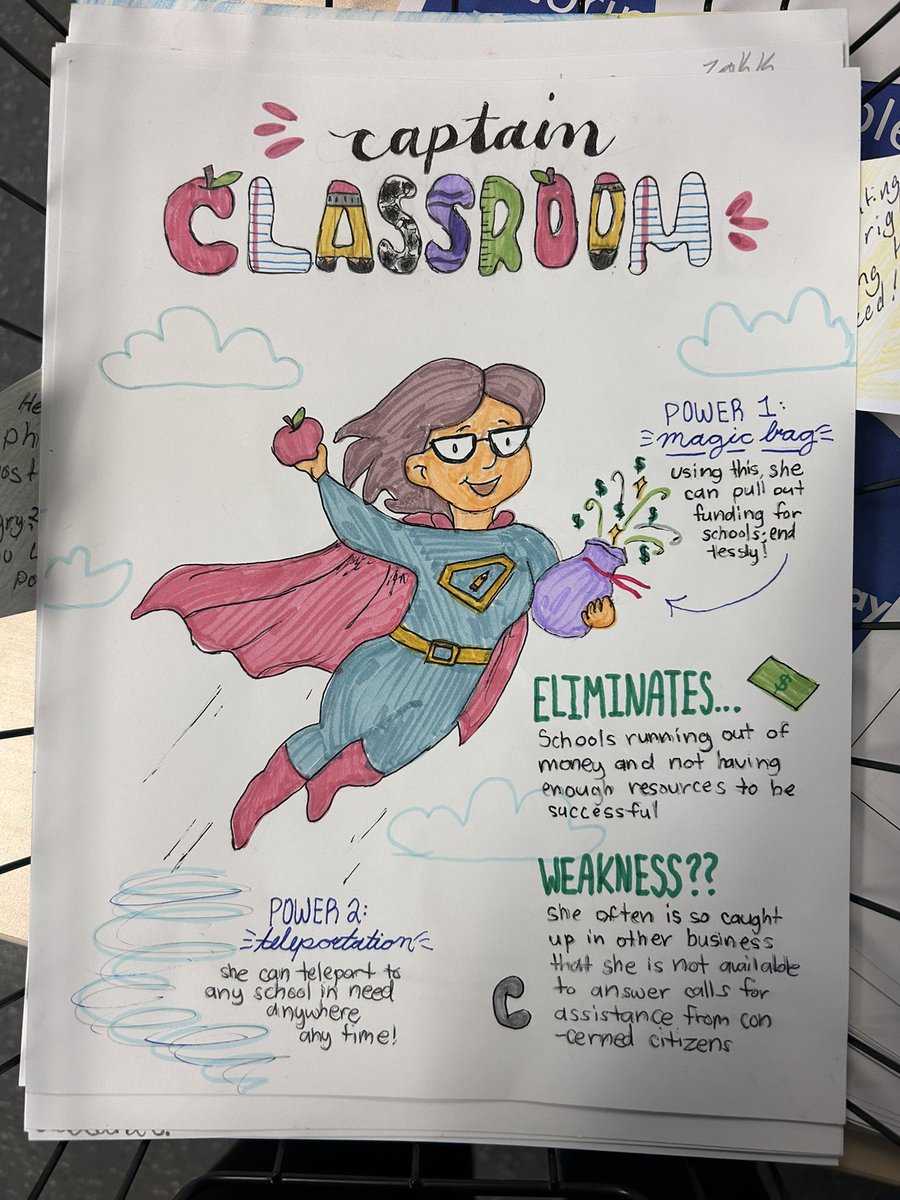 captain
CLASSROOM
POWER 1:
magic bag
using this, she
can pull out
funding for
schools, end
lessly!
ELIMINATES...
$
Schools running out of
money and not having
enough resources to be
successful
WEAKNESS??
she often is so caught
up in other business
that she is not available
to answer calls for
assistance from con
-cerned citizens
POWER 2:
teleportation
she can teleport to
any school in need
anywhere
any time!